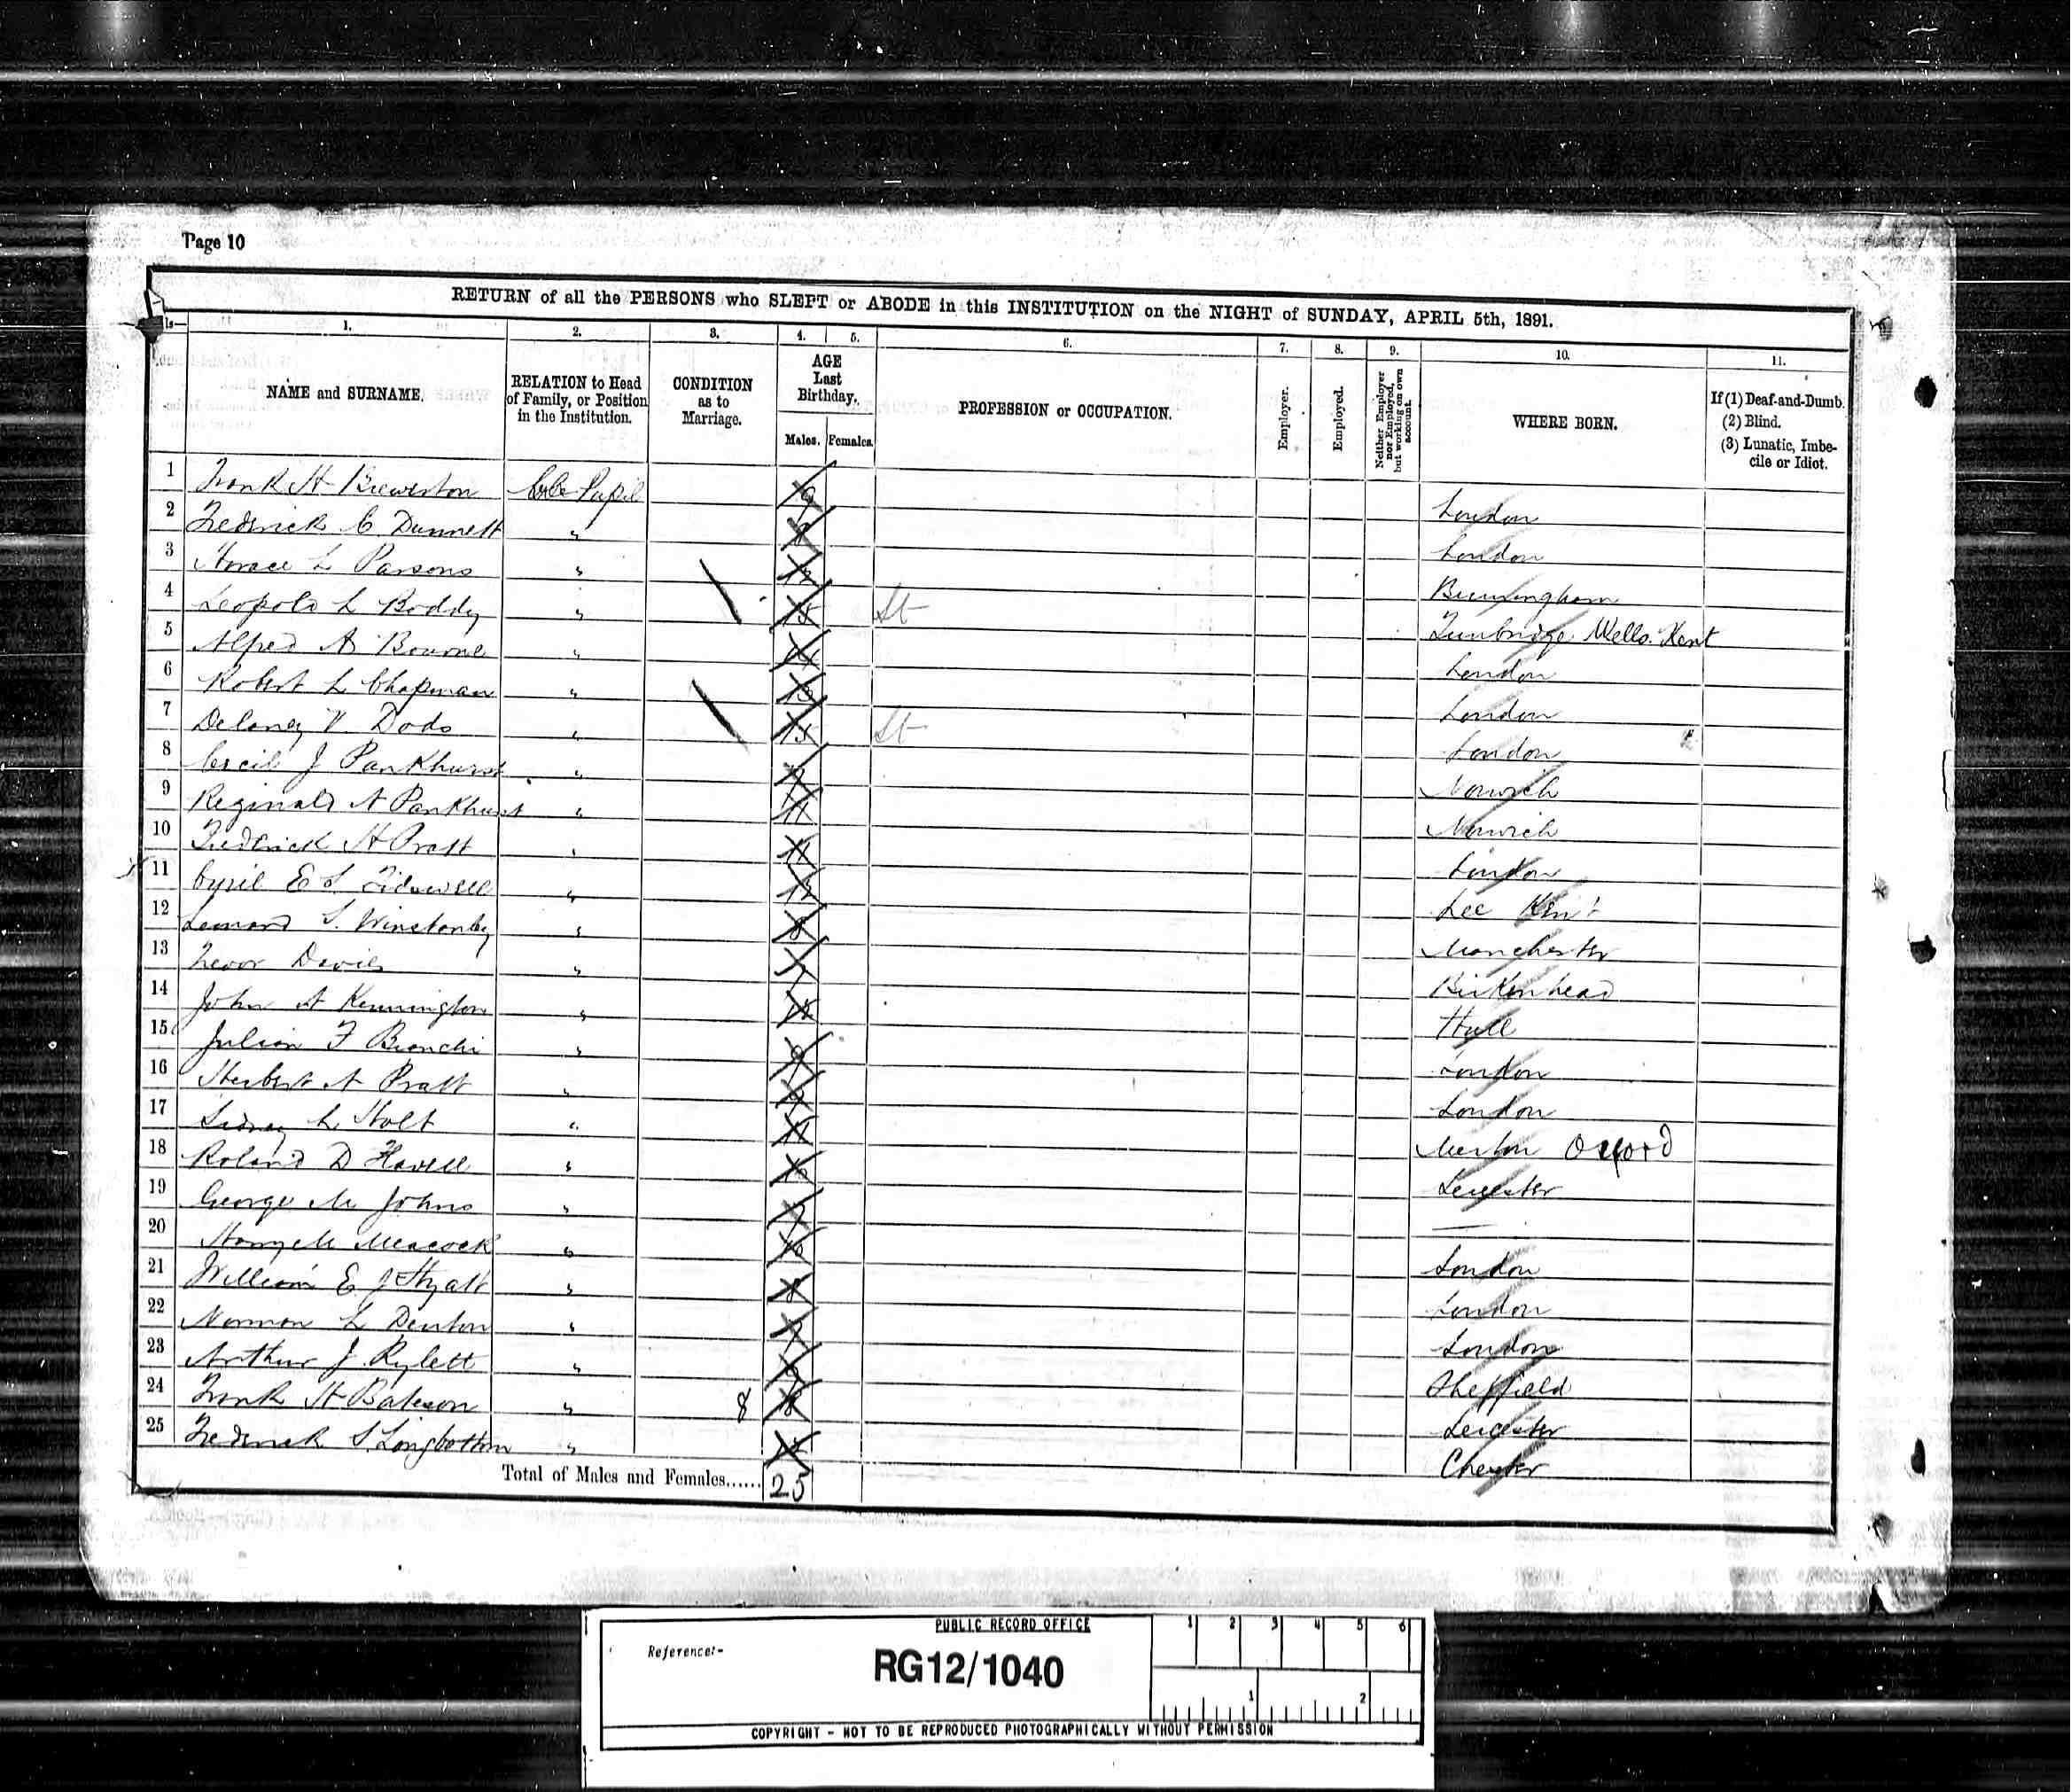 Page 10
RETURN of all the PERSONS who SLEPT or ABODE in this INSTITUTION on the NIGHT of SUNDAY, APRIL 5th, 1891.
1. 2. 3. 4. 5. 6. 7. 8. 9. 10. 11.
NAME and SURNAME. RELATION to Head of Family, or Position in the Institution. CONDITION as to Marriage. AGE Last Birthday. Males. Females. PROFESSION or OCCUPATION. Employer. Employed. Neither Employer nor Employed, but working on own account. WHERE BORN. If (1) Deaf-and-Dumb. (2) Blind. (3) Lunatic, Imbecile or Idiot.
1 Frank H Brewerton Pupil 9 London
2 Fredrick C Dunnett " 8 London
3 Horace L Parsons " Birmingham
4 Leopold L Boddy " 15 St Tunbridge Wells Kent
5 Alfred A Bourne " 14 London
6 Robert L Chapman " 13 London
7 Delaney V. Dods " 15 St London
8 Cecil J Pankhurst " Norwich
9 Reginald A Pankhurst " 11 Norwich
10 Fredrick H Pratt " London
11 Cyril E L Tidswell " Lee Kent
12 Leonard S. Winstanley " 8 Manchester
13 Trevor Davies " Birkenhead
14 John A Kennington " Hull
15 Julian F Bianchi " 9 London
16 Herbert A Pratt " London
17 Sidney L Holt " 11 Merton Oxford
18 Roland D Flavell " Leicester
19 George M Johns " —
20 Harry M Meacock " 10 London
21 William E J Hyatt " 8 London
22 Norman L Denton " London
23 Arthur J Rylett " Sheffield
24 Frank H Bateson " 8 8 Leicester
25 Fredrick S Longbottom " Chester
Total of Males and Females...... 25
PUBLIC RECORD OFFICE
1 2 3 4 5 6
Reference:-
RG12/1040
1 2
COPYRIGHT - NOT TO BE REPRODUCED PHOTOGRAPHICALLY WITHOUT PERMISSION